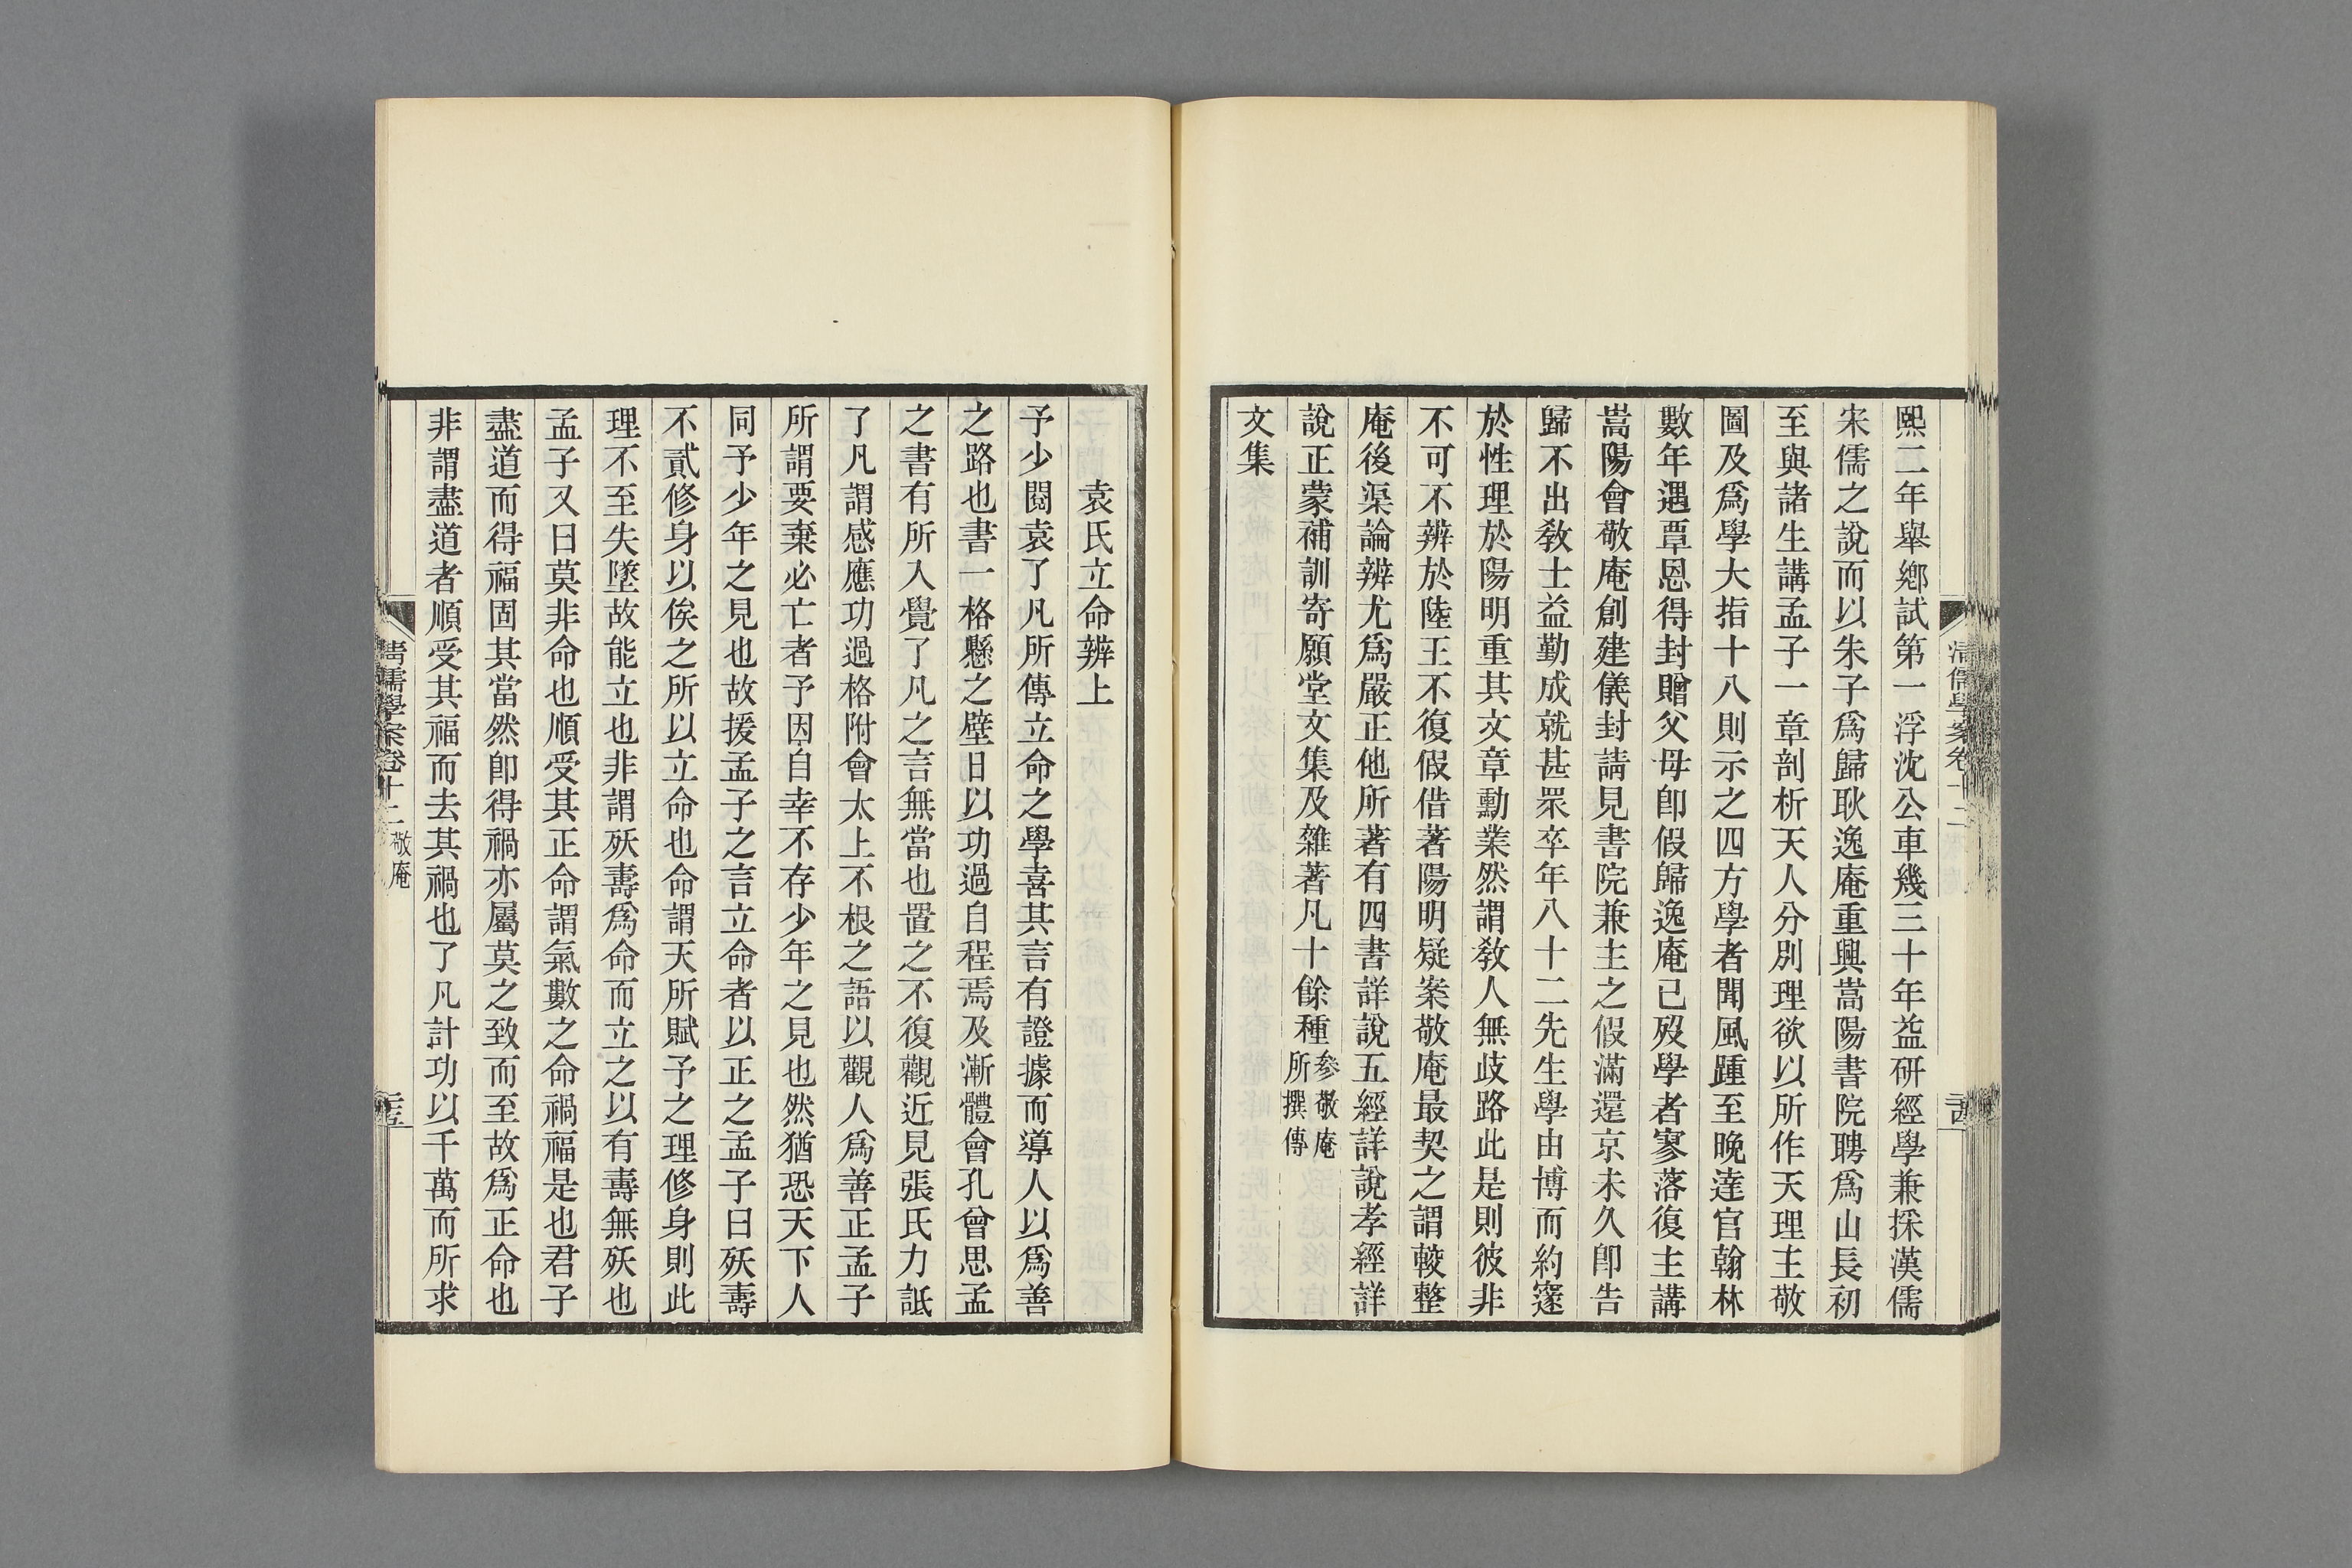 熙二年舉鄕試第一浮沈公車幾三十年益研經學兼採漢儒
宋儒之說而以朱子爲歸耿逸庵重興嵩陽書院聘爲山長初
至與諸生講孟子一章剖析天人分別理欲以所作天理主敬
圖及爲學大指十八則示之四方學者聞風踵至晚達官翰林
數年遇覃恩得封贈父母卽假歸逸庵已歿學者寥落復主講
嵩陽會敬庵創建儀封請見書院兼主之假滿還京未久卽告
歸不出敎士益勤成就甚眾卒年八十二先生學由博而約邃
於性理於陽明重其文章勳業然謂敎人無歧路此是則彼非
不可不辨於陸王不復假借著陽明疑案敬庵最契之謂較整
庵後渠論辨尤爲嚴正他所著有四書詳說五經詳說孝經詳
說正蒙補訓寄願堂文集及雜著凡十餘種參敬庵
所撰傳
文集
清儒學案卷十二
袁氏立命辨上
予少閱袁了凡所傳立命之學喜其言有證據而導人以爲善
之路也書一格懸之壁日以功過自程焉及漸體會孔曾思孟
之書有所入覺了凡之言無當也置之不復觀近見張氏力詆
了凡謂感應功過格附會太上不根之語以觀人爲善正孟子
所謂要棄必亡者予因自幸不存少年之見也然猶恐天下人
同予少年之見也故援孟子之言立命者以正之孟子曰殀壽
不貳修身以俟之所以立命也命謂天所賦予之理修身則此
理不至失墜故能立也非謂殀壽爲命而立之以有壽無殀也
孟子又曰莫非命也順受其正命謂氣數之命禍福是也君子
盡道而得福固其當然卽得禍亦屬莫之致而至故爲正命也
非謂盡道者順受其福而去其禍也了凡計功以千萬而所求
清儒學案卷十二 敬庵